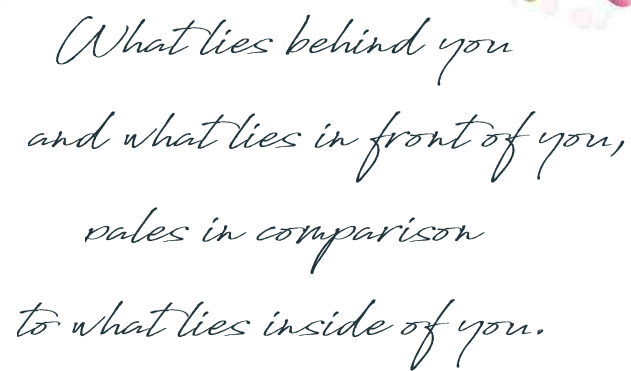 What lies behind you
and what lies in front of you,
pales in comparison
to what lies inside of you.